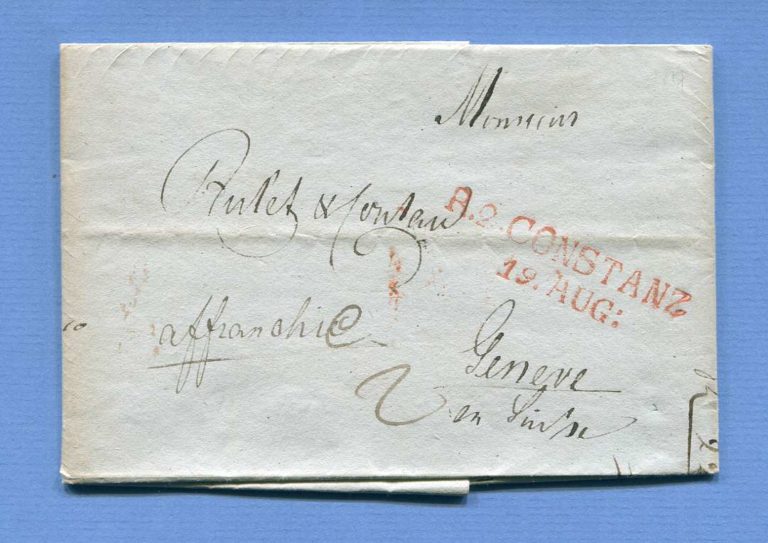 Monsieur
Rulet & Coutau
R.2.CONSTANZ
19. AUG:
affranchie
Geneve
2
en Suisse